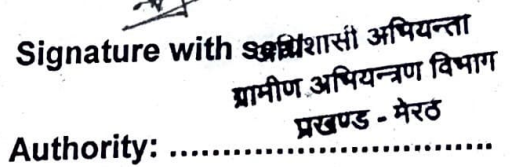 Signature with seal अधिशासी अभियन्ता
ग्रामीण अभियन्त्रण विभाग
प्रखण्ड - मेरठ
Authority: ................................